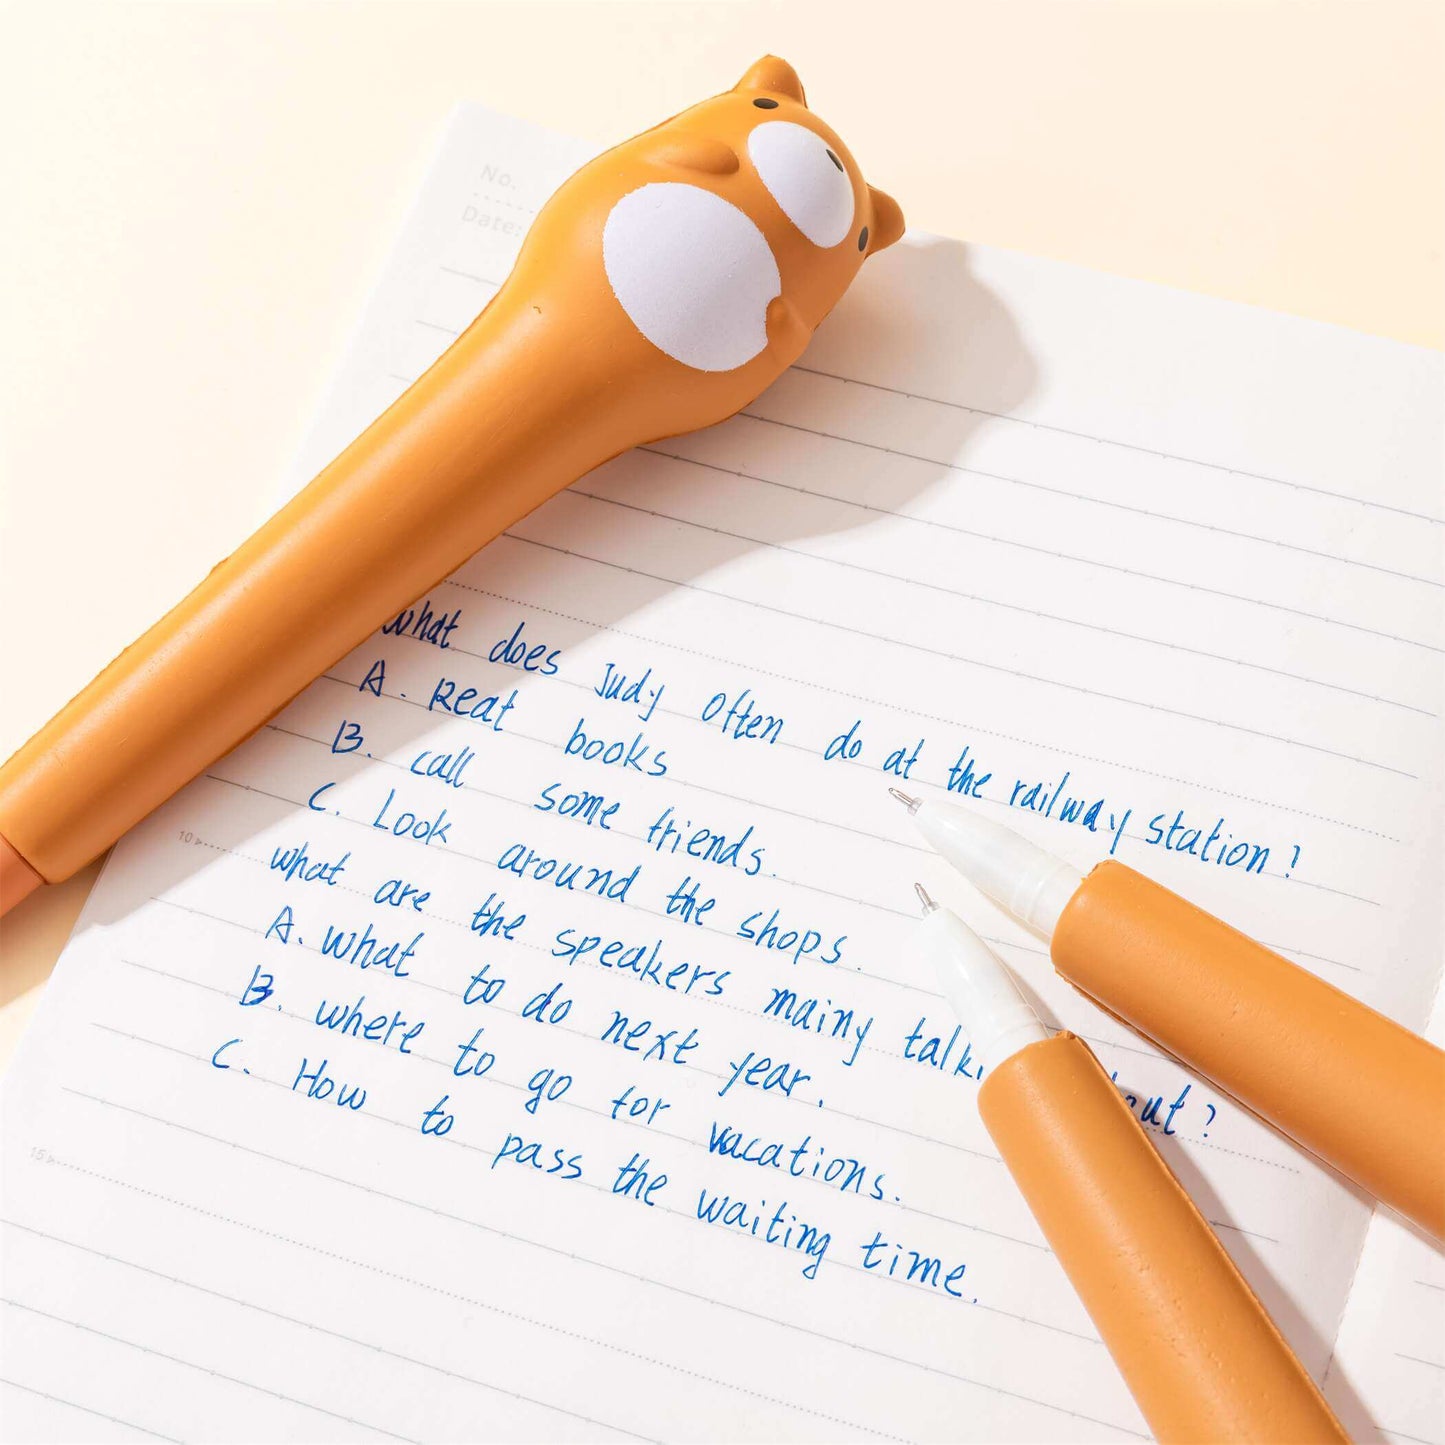 No.
Date:
What does Judy Often do at the railway station?
A. Reat books
B. call some friends.
C. Look around the shops.
10
what are the speakers mainy talki out?
A. what to do next year.
B. where to go for vacations.
C. How to pass the waiting time.
15